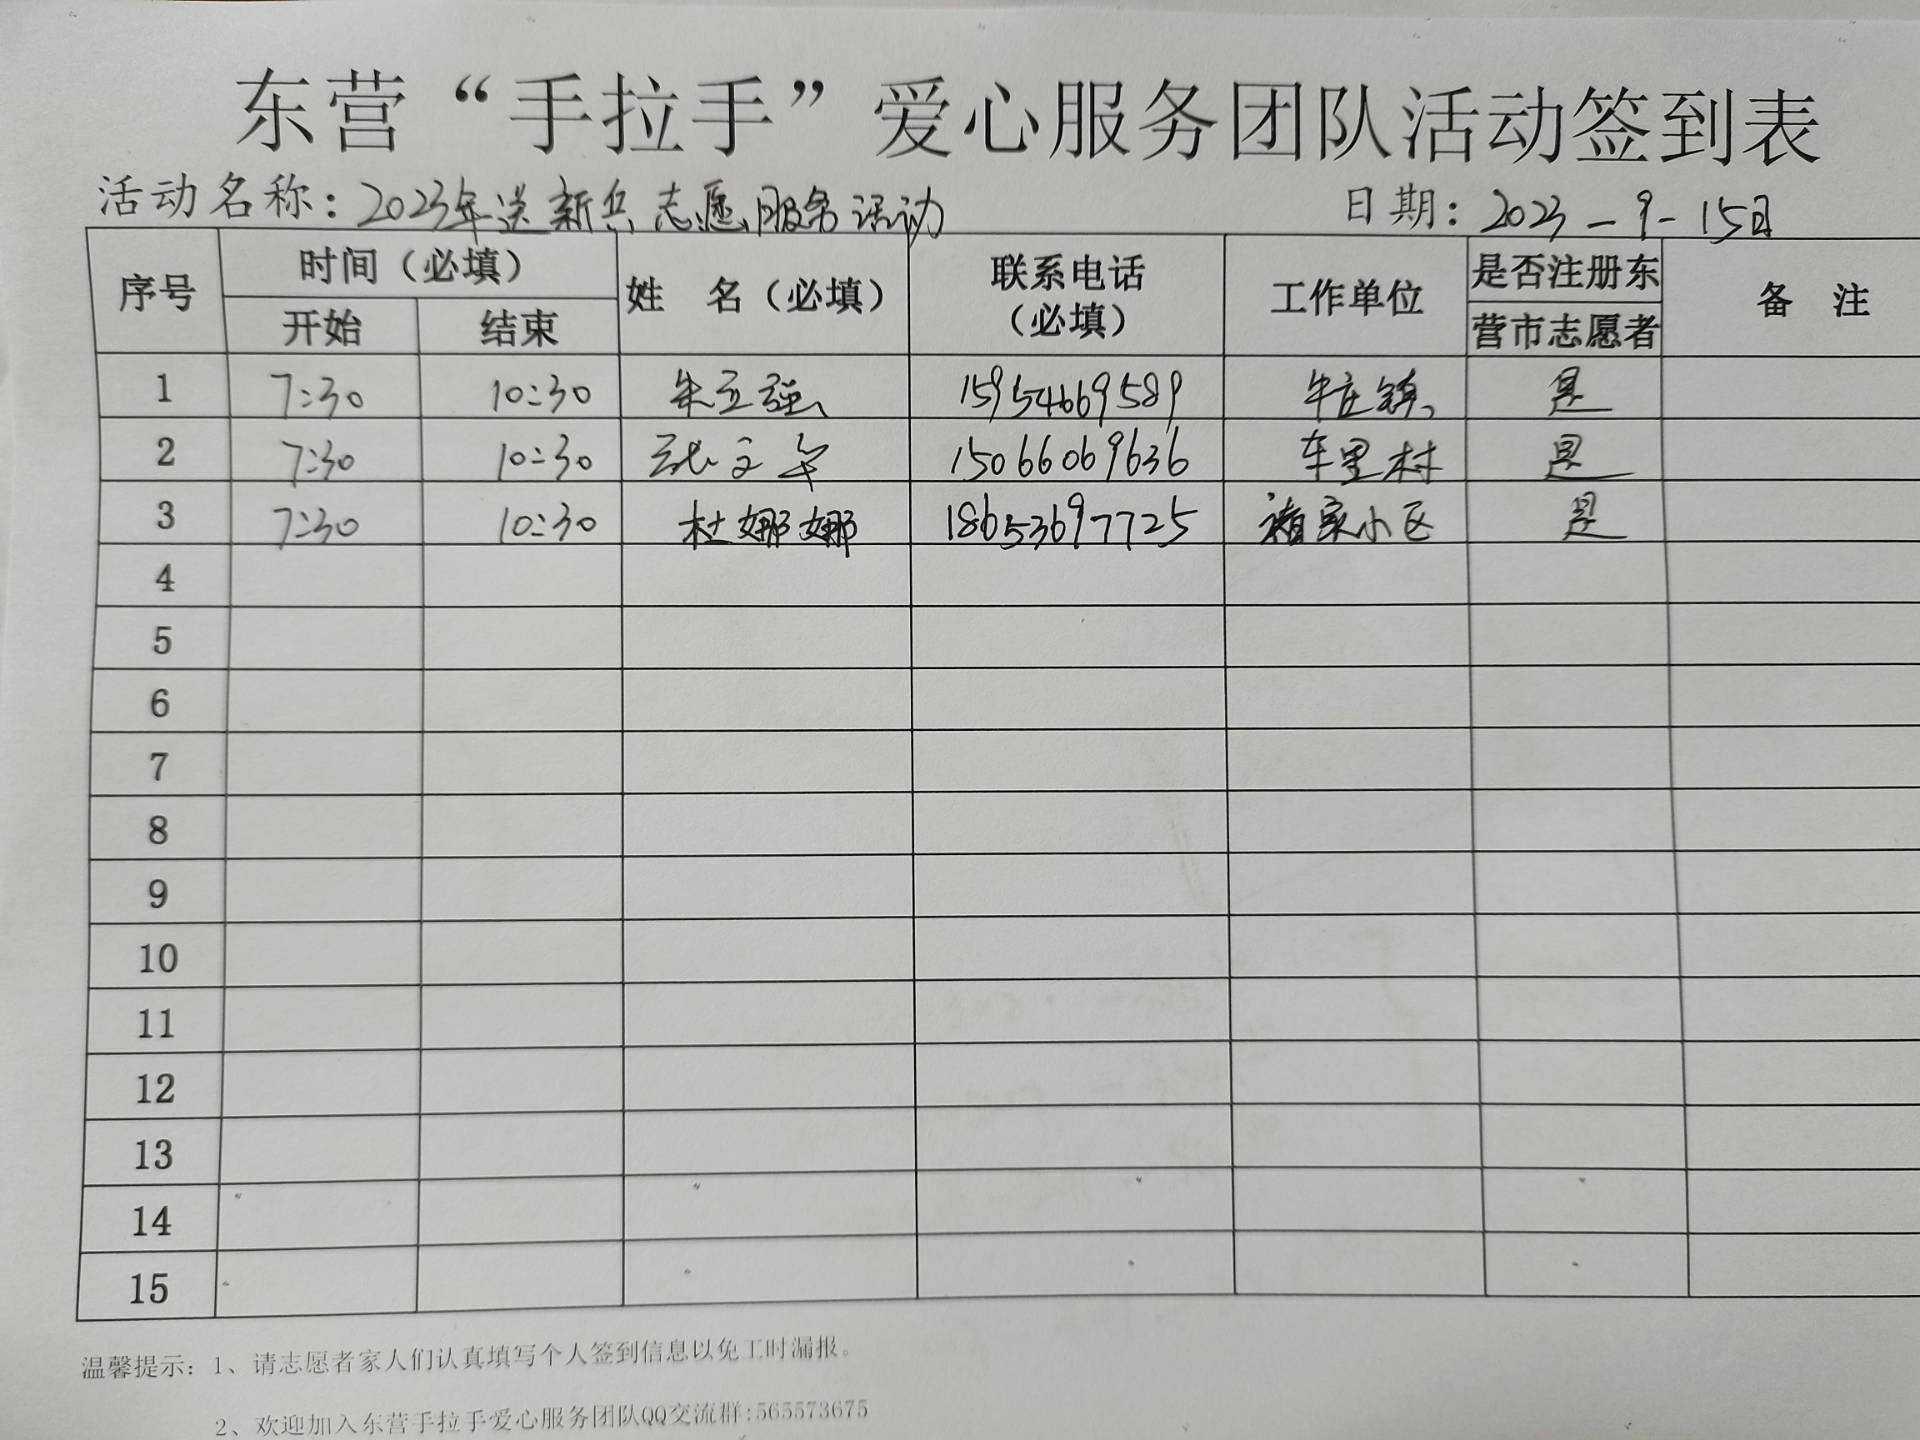 东营“手拉手”爱心服务团队活动签到表
活动名称：2023年送新兵志愿服务活动 日期：2023-9-15日
序号 时间（必填） 姓 名（必填） 联系电话（必填） 工作单位 是否注册东营市志愿者 备 注
开始 结束
1 7:30 10:30 朱立强 15954669589 牛庄镇 是
2 7:30 10:30 15066069636 车里村 是
3 7:30 10:30 杜娜娜 18653697725 家小区 是
4
5
6
7
8
9
10
11
12
13
14
15
温馨提示：1、请志愿者家人们认真填写个人签到信息以免工时漏报。
2、欢迎加入东营手拉手爱心服务团队QQ交流群:565573675